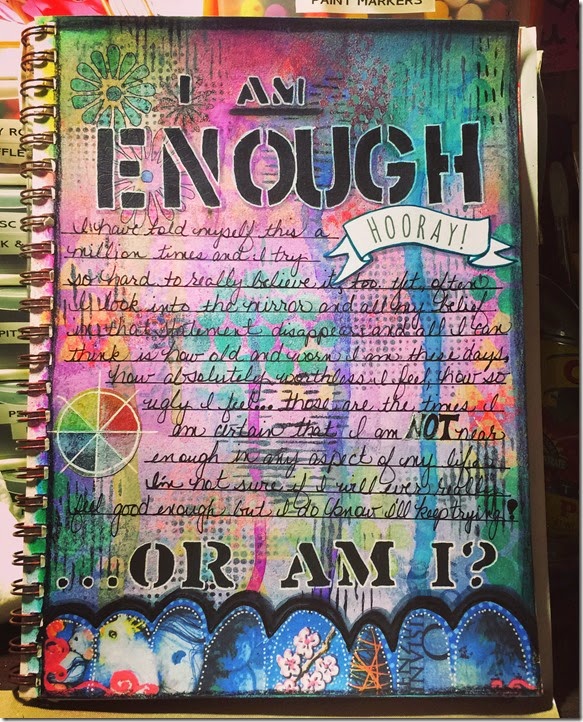 PAINT MARKERS
I AM
ENOUGH
HOORAY!
I have told myself this a
million times and I try
so hard to really believe it, too. Yet often
I look into the mirror and all my belief
in that statement disappears and all I can
think is how old and worn I am these days,
how absolutely worthless I feel, how so
ugly I feel... those are the times I
am certain that I am NOT near
enough in any aspect of my life.
I'm not sure if I will ever really
feel good enough but I do know I'll keep trying!
...OR AM I?